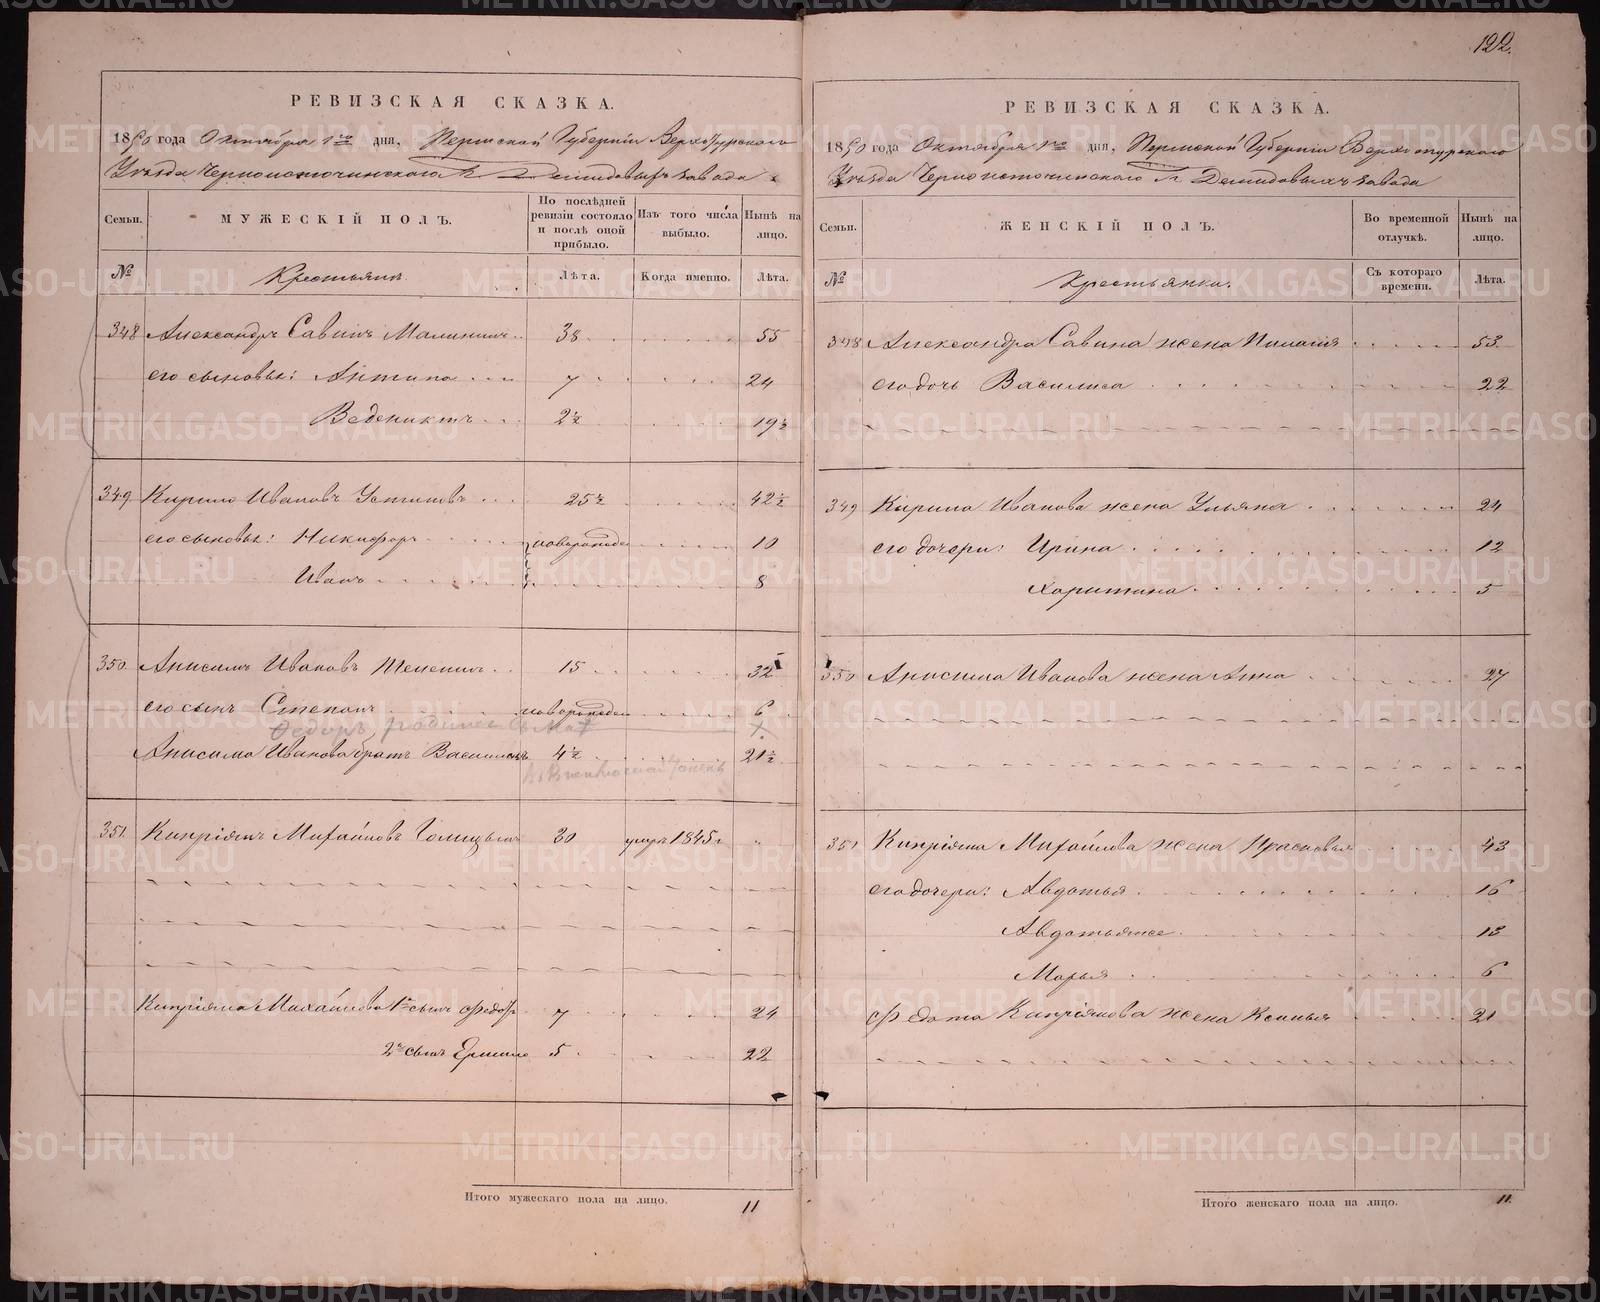 122.
РЕВИЗСКАЯ СКАЗКА.
1850 года Октября 1го дня, Пермской Губерніи Верхотурского
Уѣзда Черноисточинского Гг. Демидовыхъ завода
Семьи. МУЖЕСКІЙ ПОЛЪ. По послѣдней ревизіи состояло и послѣ оной прибыло. Изъ того числа выбыло. Нынѣ на лицо.
№ Крестьянъ Лѣта. Когда именно. Лѣта.
348 Александръ Савинъ Малининъ 38 55
его сыновья: Антипа 7 24
Ведениктъ 2½ 19½
349 Кирило Ивановъ Устиновъ 25½ 42½
его сыновья: Никифоръ новорожде 10
Иванъ 8
350. Анисимъ Ивановъ 15 32
его сынъ Степанъ новорожден 6
Федоръ,
Анисима Иванова братъ Василій 4½ 21½
351. Кипріянъ Михайловъ Голицынъ 30 умеръ 1845 г „
Кипріяна Михайлова 1й сынъ Федотъ 7 24
2й сынъ Ермило 5 22
Итого мужескаго пола на лицо. 11
РЕВИЗСКАЯ СКАЗКА.
1850 года Октября 1го дня, Пермской Губерніи Верхотурского
Уѣзда Черноисточинского Гг Демидовыхъ завода
Семьи. ЖЕНСКІЙ ПОЛЪ. Во временной отлучкѣ. Нынѣ на лицо.
№ Крестьянки. Съ котораго времени. Лѣта.
348 Александра Савина жена Пилагія 53
его дочь Василиса 22
349 Кирила Иванова жена Ульяна 24
его дочери: Ирина 12
Харитина 5
350 Анисима Иванова жена Анна 27
351 Кипріяна Михайлова жена Прасковья 43
его дочери: Авдотья 16
Авдотьяже 13
Марья 6
Федота Кипріянова жена Ксинья 21
Итого женскаго пола на лицо. 11.
METRIKI.GASO-URAL.RU